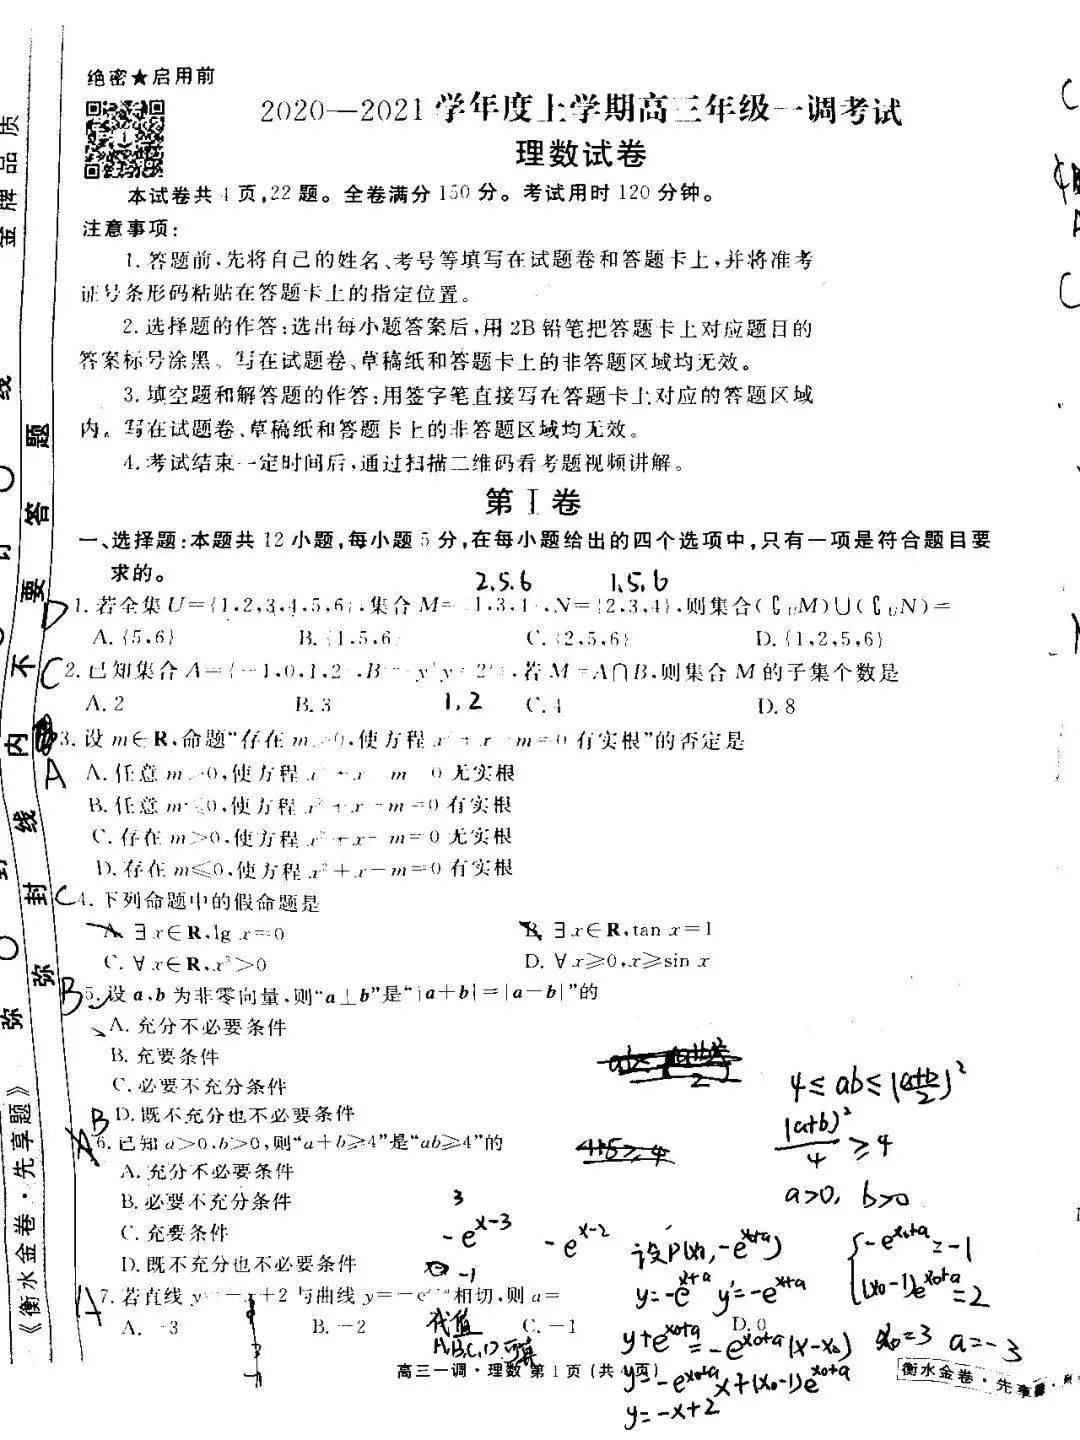 绝密★启用前
2020—2021学年度上学期高三年级一调考试
理数试卷
本试卷共4页,22题。全卷满分150分。考试用时120分钟。
注意事项:
1.答题前,先将自己的姓名、考号等填写在试题卷和答题卡上,并将准考
证号条形码粘贴在答题卡上的指定位置。
2.选择题的作答:选出每小题答案后,用2B铅笔把答题卡上对应题目的
答案标号涂黑。写在试题卷、草稿纸和答题卡上的非答题区域均无效。
3.填空题和解答题的作答:用签字笔直接写在答题卡上对应的答题区域
内。写在试题卷、草稿纸和答题卡上的非答题区域均无效。
4.考试结束一定时间后,通过扫描二维码看考题视频讲解。
第Ⅰ卷
一、选择题:本题共12小题,每小题5分,在每小题给出的四个选项中,只有一项是符合题目要
求的。
2.5.6 1.5.6
D 1.若全集U={1,2,3,4,5,6},集合M= 1,3,4 ,N={2,3,4},则集合(∁UM)∪(∁UN)=
A.{5,6} B.{1,5,6} C.{2,5,6} D.{1,2,5,6}
C 2.已知集合A={-1,0,1,2},B= y y=2 ,若M=A∩B,则集合M的子集个数是
A.2 B.3 1,2 C.4 D.8
3.设m∈R,命题“存在m>0,使方程x²+x-m=0有实根”的否定是
A A.任意m>0,使方程x²+x-m=0无实根
B.任意m≤0,使方程x²+x-m=0有实根
C.存在m>0,使方程x²+x-m=0无实根
D.存在m≤0,使方程x²+x-m=0有实根
C 4.下列命题中的假命题是
A.∃x∈R,lg x=0 B.∃x∈R,tan x=1
C.∀x∈R,x³>0 D.∀x≥0,x≥sin x
B 5.设a,b为非零向量,则“a⊥b”是“|a+b|=|a-b|”的
A.充分不必要条件
B.充要条件
C.必要不充分条件
D.既不充分也不必要条件
4≤ab≤(a+b/2)²
B 6.已知a>0,b>0,则“a+b≥4”是“ab≥4”的
(a+b)²/4≥4
A.充分不必要条件
a>0, b>0
B.必要不充分条件
C.充要条件
-e^(x-3) -e^(x-2) 设P(x₀,-e^(x₀+a)) {-e^(x₀+a)=-1
D.既不充分也不必要条件
y=-e^(x+a) y'=-e^(x+a) (x₀-1)e^(x₀+a)=2
A 7.若直线y=-x+2与曲线y=-e^(x+a)相切,则a=
A.-3 B.-2 代值 C.-1 D.0
A,B,C,D可算 y+e^(x₀+a)=-e^(x₀+a)(x-x₀) x₀=3 a=-3
y=-e^(x₀+a)x+(x₀-1)e^(x₀+a)
y=-x+2
高三一调·理数 第1页(共4页)
衡水金卷·先享题
金牌品质
弥封线内不要答题
《衡水金卷·先享题》